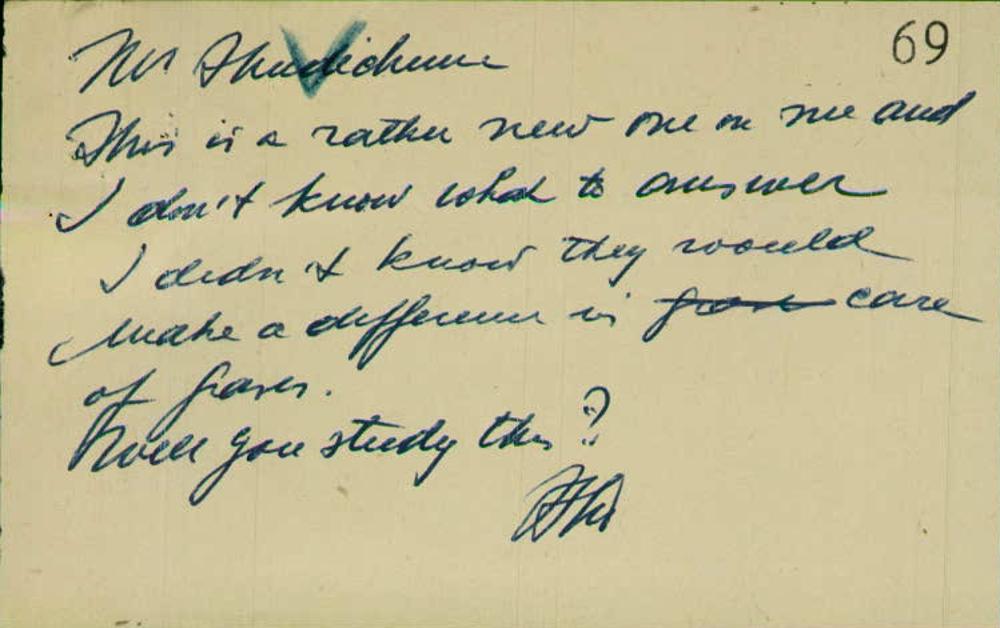 69
Mr Thudichum
This is a rather new one on me and
I don't know what to answer
I didn't know they would
make a difference in care
of graves.
Will you study this?